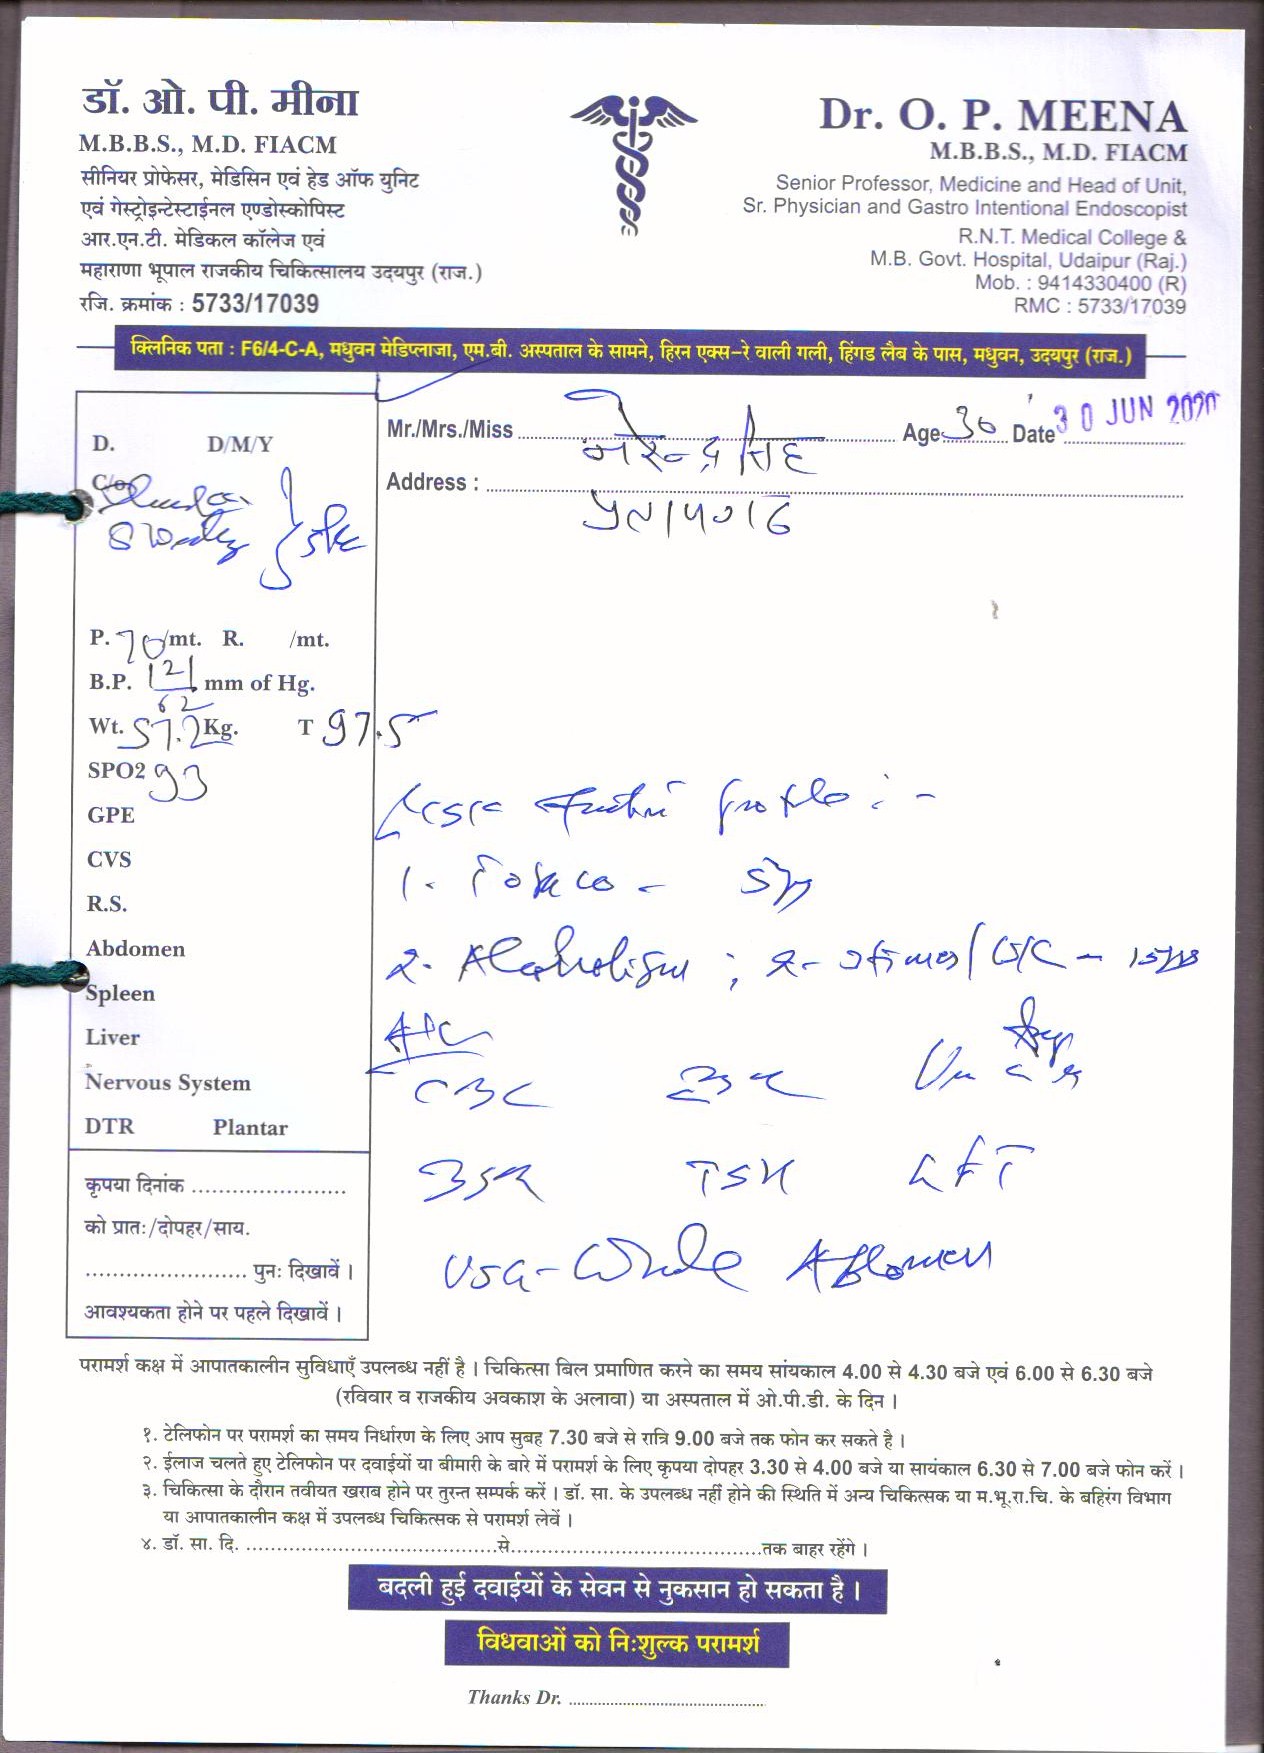 डॉ. ओ. पी. मीना
M.B.B.S., M.D. FIACM
सीनियर प्रोफेसर, मेडिसिन एवं हेड ऑफ युनिट
एवं गेस्ट्रोइन्टेस्टाईनल एण्डोस्कोपिस्ट
आर.एन.टी. मेडिकल कॉलेज एवं
महाराणा भूपाल राजकीय चिकित्सालय उदयपुर (राज.)
रजि. क्रमांक : 5733/17039
Dr. O. P. MEENA
M.B.B.S., M.D. FIACM
Senior Professor, Medicine and Head of Unit,
Sr. Physician and Gastro Intentional Endoscopist
R.N.T. Medical College &
M.B. Govt. Hospital, Udaipur (Raj.)
Mob. : 9414330400 (R)
RMC : 5733/17039
क्लिनिक पता : F6/4-C-A, मधुवन मेडिप्लाजा, एम.बी. अस्पताल के सामने, हिरन एक्स-रे वाली गली, हिंगड लैब के पास, मधुवन, उदयपुर (राज.)
Mr./Mrs./Miss नरेन्द्र सिंह Age 30 Date 30 JUN 2020
Address : प्रतापगढ
D. D/M/Y
C/o
P. 70/mt. R. /mt.
B.P. 121/62 mm of Hg.
Wt. 57.2 Kg. T 97.5
SPO2 93
GPE
CVS
R.S.
Abdomen
Spleen
Liver
Nervous System
DTR Plantar
कृपया दिनांक
को प्रातः/दोपहर/साय.
पुनः दिखावें ।
आवश्यकता होने पर पहले दिखावें ।
profile :-
1. Tobacco -
2. Alcoholism ;
CBC
TSH LFT
USG - Whole Abdomen
परामर्श कक्ष में आपातकालीन सुविधाएँ उपलब्ध नहीं है । चिकित्सा बिल प्रमाणित करने का समय सांयकाल 4.00 से 4.30 बजे एवं 6.00 से 6.30 बजे
(रविवार व राजकीय अवकाश के अलावा) या अस्पताल में ओ.पी.डी. के दिन ।
१. टेलिफोन पर परामर्श का समय निर्धारण के लिए आप सुबह 7.30 बजे से रात्रि 9.00 बजे तक फोन कर सकते है ।
२. ईलाज चलते हुए टेलिफोन पर दवाईयों या बीमारी के बारे में परामर्श के लिए कृपया दोपहर 3.30 से 4.00 बजे या सायंकाल 6.30 से 7.00 बजे फोन करें ।
३. चिकित्सा के दौरान तवीयत खराब होने पर तुरन्त सम्पर्क करें । डॉ. सा. के उपलब्ध नहीं होने की स्थिति में अन्य चिकित्सक या म.भू.रा.चि. के बहिरंग विभाग
या आपातकालीन कक्ष में उपलब्ध चिकित्सक से परामर्श लेवें ।
४. डॉ. सा. दि. से तक बाहर रहेंगे ।
बदली हुई दवाईयों के सेवन से नुकसान हो सकता है ।
विधवाओं को निःशुल्क परामर्श
Thanks Dr.